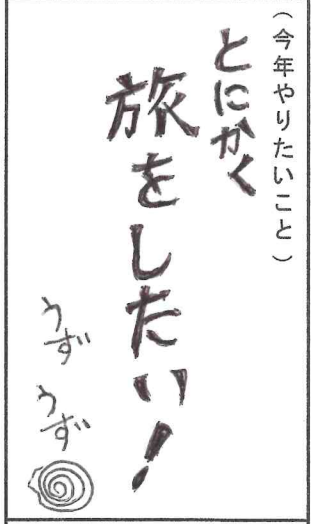 （今年やりたいこと）
とにかく
旅をしたい！
うず
うず